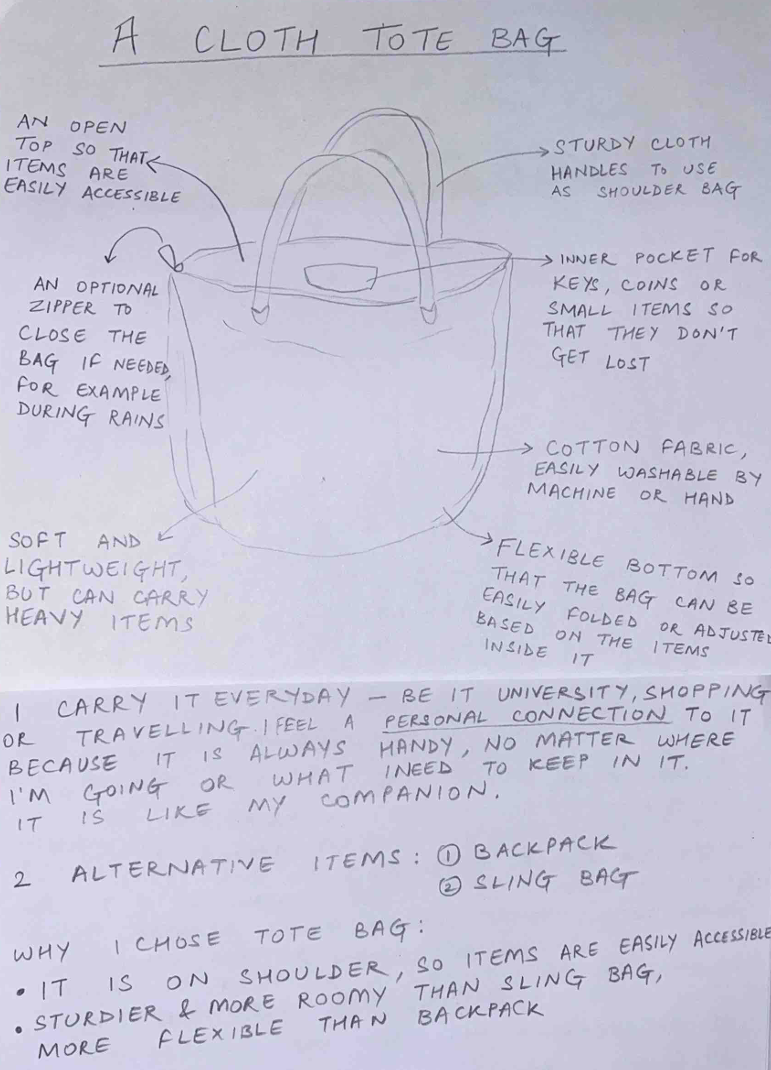 A CLOTH TOTE BAG
AN OPEN
TOP SO THAT
ITEMS ARE
EASILY ACCESSIBLE
STURDY CLOTH
HANDLES TO USE
AS SHOULDER BAG
AN OPTIONAL
ZIPPER TO
CLOSE THE
BAG IF NEEDED,
FOR EXAMPLE
DURING RAINS
INNER POCKET FOR
KEYS, COINS OR
SMALL ITEMS SO
THAT THEY DON'T
GET LOST
COTTON FABRIC,
EASILY WASHABLE BY
MACHINE OR HAND
SOFT AND
LIGHTWEIGHT,
BUT CAN CARRY
HEAVY ITEMS
FLEXIBLE BOTTOM SO
THAT THE BAG CAN BE
EASILY FOLDED OR ADJUSTED
BASED ON THE ITEMS
INSIDE IT
I CARRY IT EVERYDAY – BE IT UNIVERSITY, SHOPPING
OR TRAVELLING. I FEEL A PERSONAL CONNECTION TO IT
BECAUSE IT IS ALWAYS HANDY, NO MATTER WHERE
I'M GOING OR WHAT I NEED TO KEEP IN IT.
IT IS LIKE MY COMPANION.
2 ALTERNATIVE ITEMS: ① BACKPACK
② SLING BAG
WHY I CHOSE TOTE BAG:
• IT IS ON SHOULDER, SO ITEMS ARE EASILY ACCESSIBLE
• STURDIER & MORE ROOMY THAN SLING BAG,
MORE FLEXIBLE THAN BACKPACK